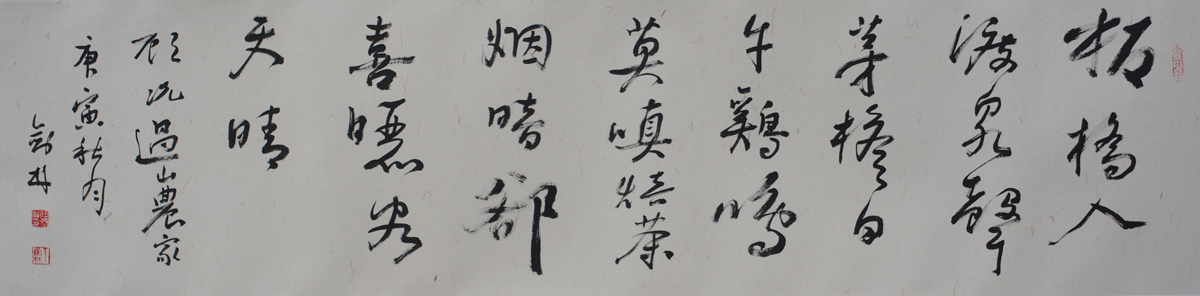 板橋人
渡泉聲
茅檐日
午鷄鳴
莫嗔焙茶
烟暗郤
喜曬谷
天晴
顧况過山農家
庚寅秋月